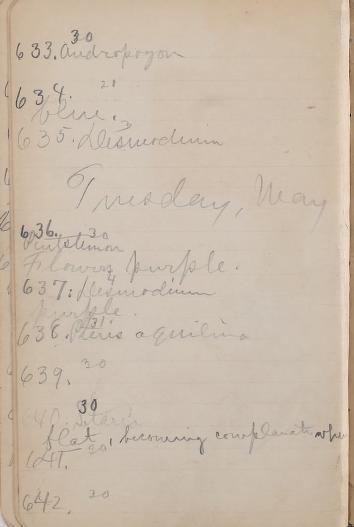 30
633. Andropogon
28
634.
blue.
3
635. Desmodium
Tuesday, May
636. 30
Pentstemon
Flowers purple.
4
637: Desmodium
purple.
31.
638. Pteris aquilina
639. 30
640. Setaria
30
flat, becoming complanate when
641. 30
642. 30